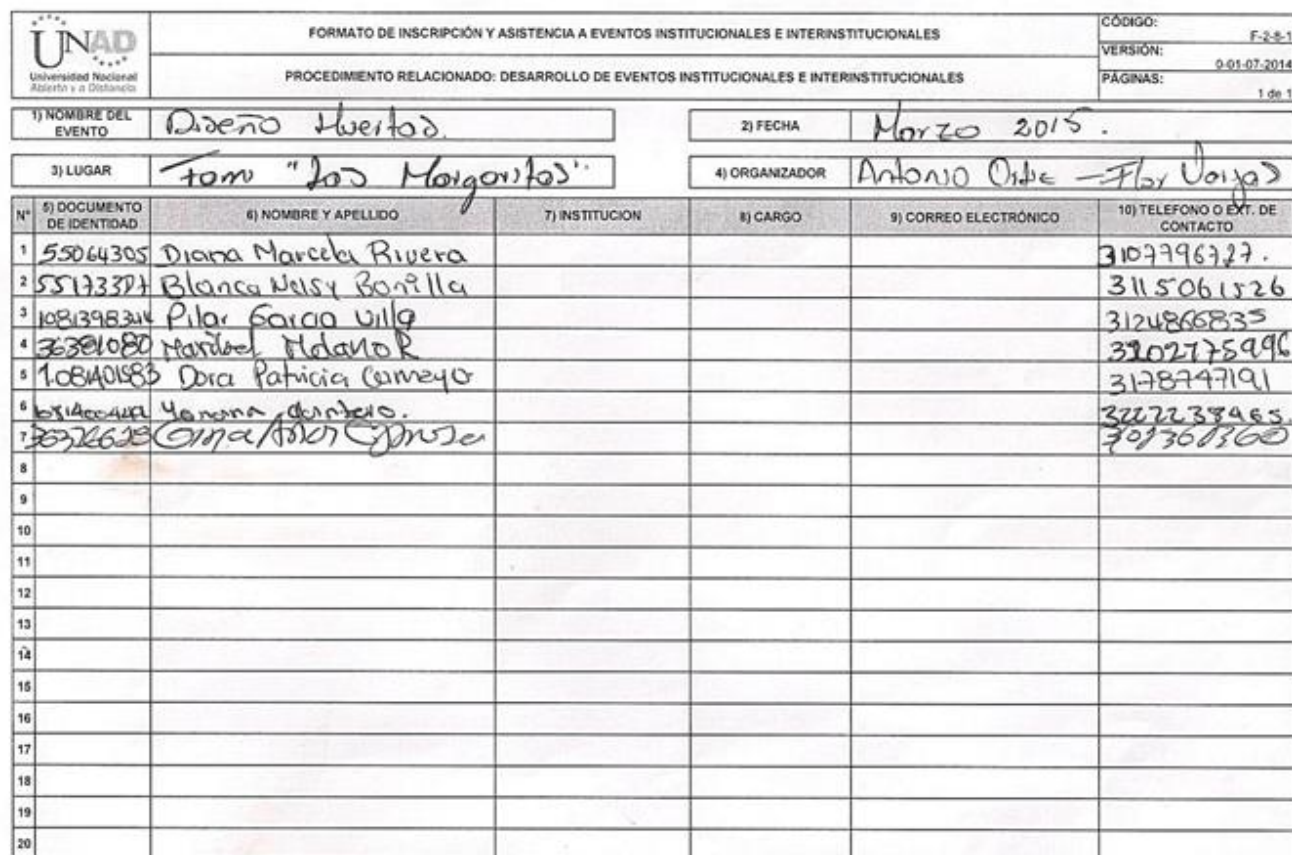 UNAD
Universidad Nacional
Abierta y a Distancia
FORMATO DE INSCRIPCIÓN Y ASISTENCIA A EVENTOS INSTITUCIONALES E INTERINSTITUCIONALES
PROCEDIMIENTO RELACIONADO: DESARROLLO DE EVENTOS INSTITUCIONALES E INTERINSTITUCIONALES
CÓDIGO:
F-2-8-1
VERSIÓN:
0-01-07-2014
PÁGINAS:
1 de 1
1) NOMBRE DEL EVENTO Diseño Huertas.
2) FECHA Marzo 2015.
3) LUGAR Fami "Las Margaritas".
4) ORGANIZADOR Antonio - Flor Vargas
N° 5) DOCUMENTO DE IDENTIDAD 6) NOMBRE Y APELLIDO 7) INSTITUCION 8) CARGO 9) CORREO ELECTRÓNICO 10) TELEFONO O EXT. DE CONTACTO
1 55064305 Diana Marcela Rivera 3107796727.
2 Blanca Nelsy Bonilla 3115061526
3 Pilar Garcia Villa 3124866835
4 Maribel Molano R
5 Dora Patricia Cameyo 3178747191
6
7
8
9
10
11
12
13
14
15
16
17
18
19
20